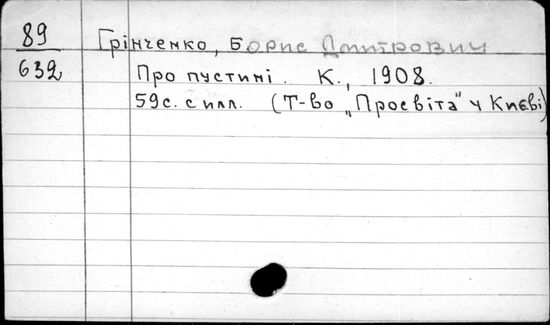 89
632
Грінченко, Борис Дмитрович
Про пустині. К., 1908.
59с. с илл. (Т-во „Просвіта" у Київі)